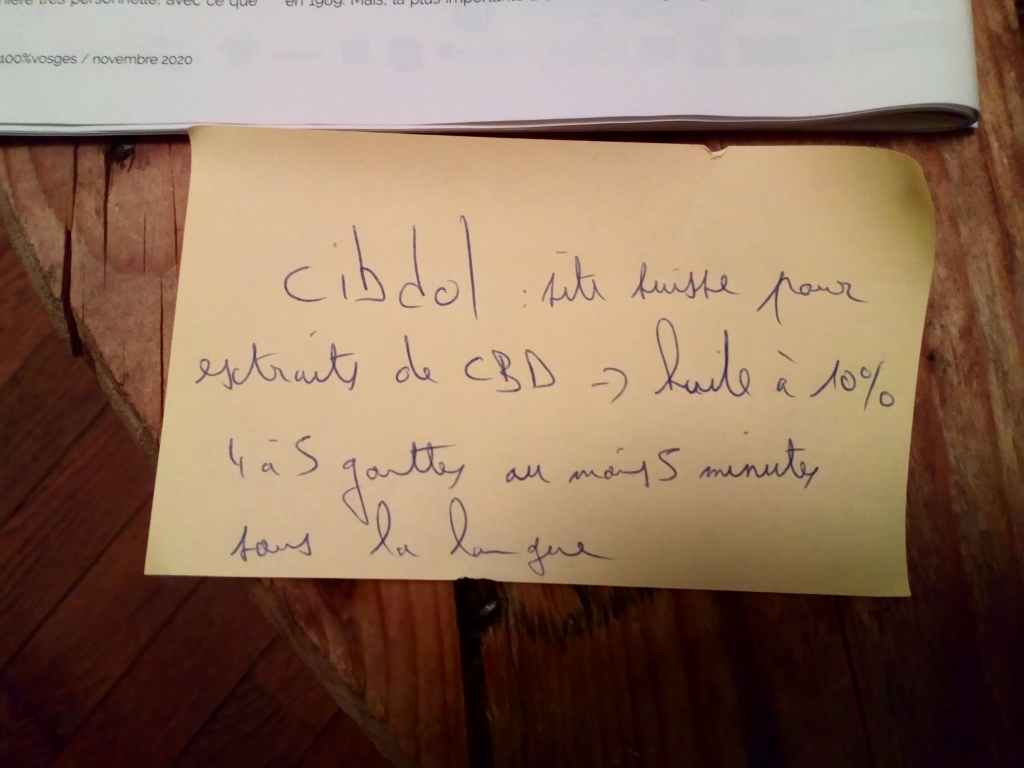 très personnelle, avec ce que en 1989. Mais, la plus importante
100%vosges / novembre 2020
cibdol : site suisse pour
extraits de CBD -> huile à 10%
4 à 5 gouttes au moins 5 minutes
sous la langue